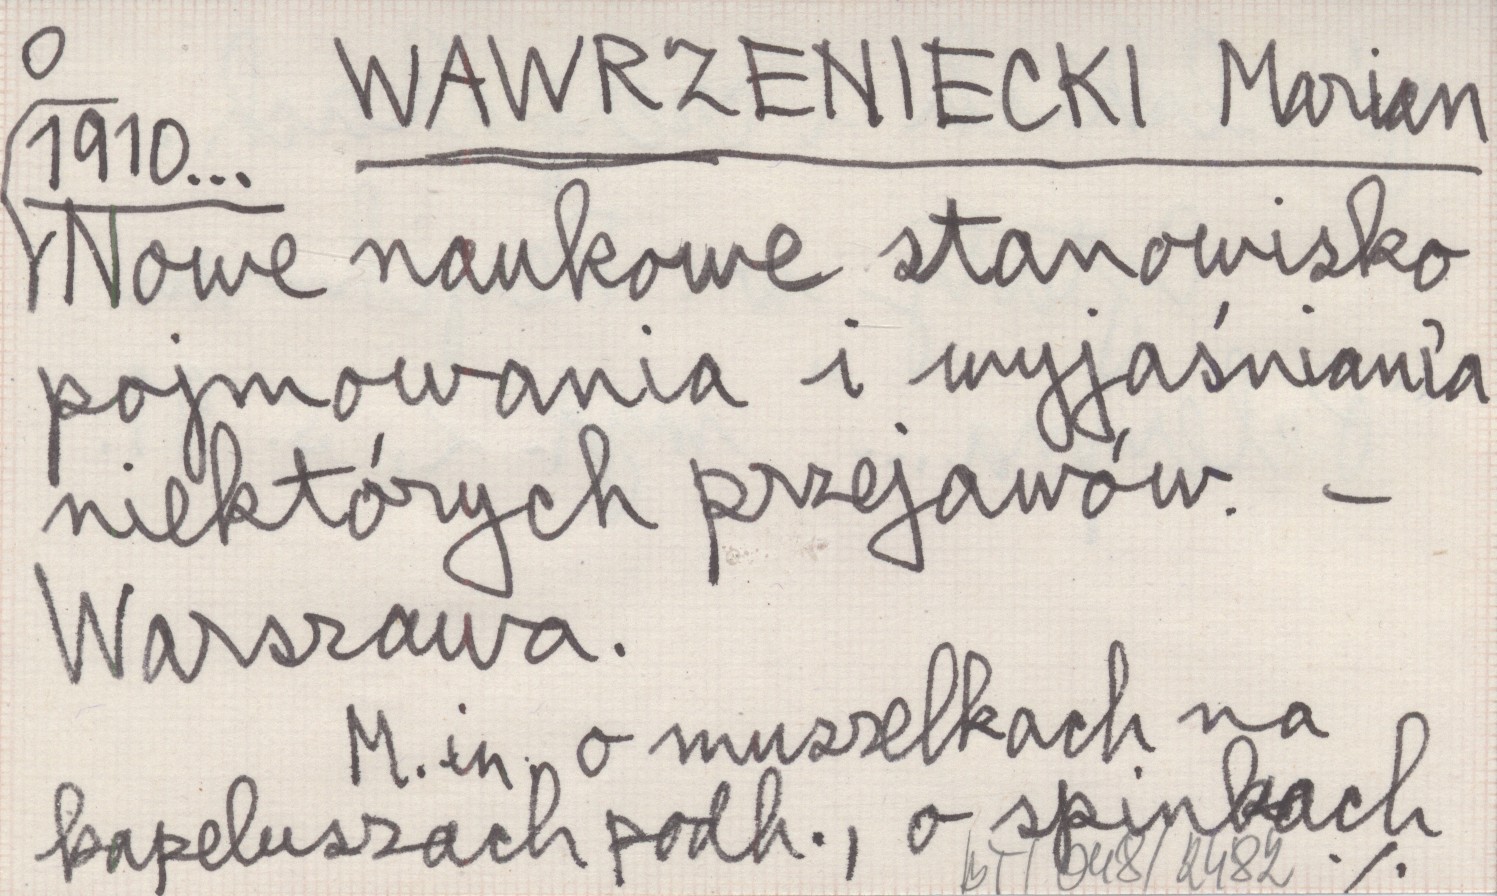 O
WAWRZENIECKI Marian
1910...
Nowe naukowe stanowisko
pojmowania i wyjaśniania
niektórych przejawów. –
Warszawa.
M. in. o muszelkach na
kapeluszach podh., o spinkach
./.
BT/048/2482